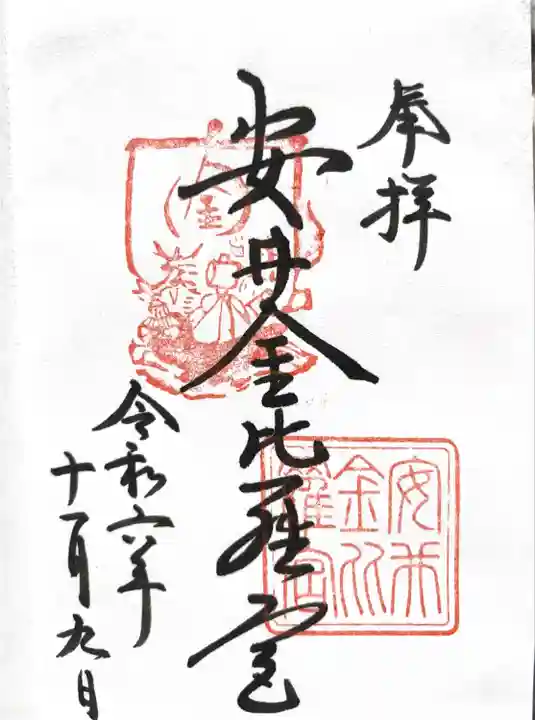 奉拝
安井金比羅宮
令和六年
十一月九日
安井
金比
羅宮
金